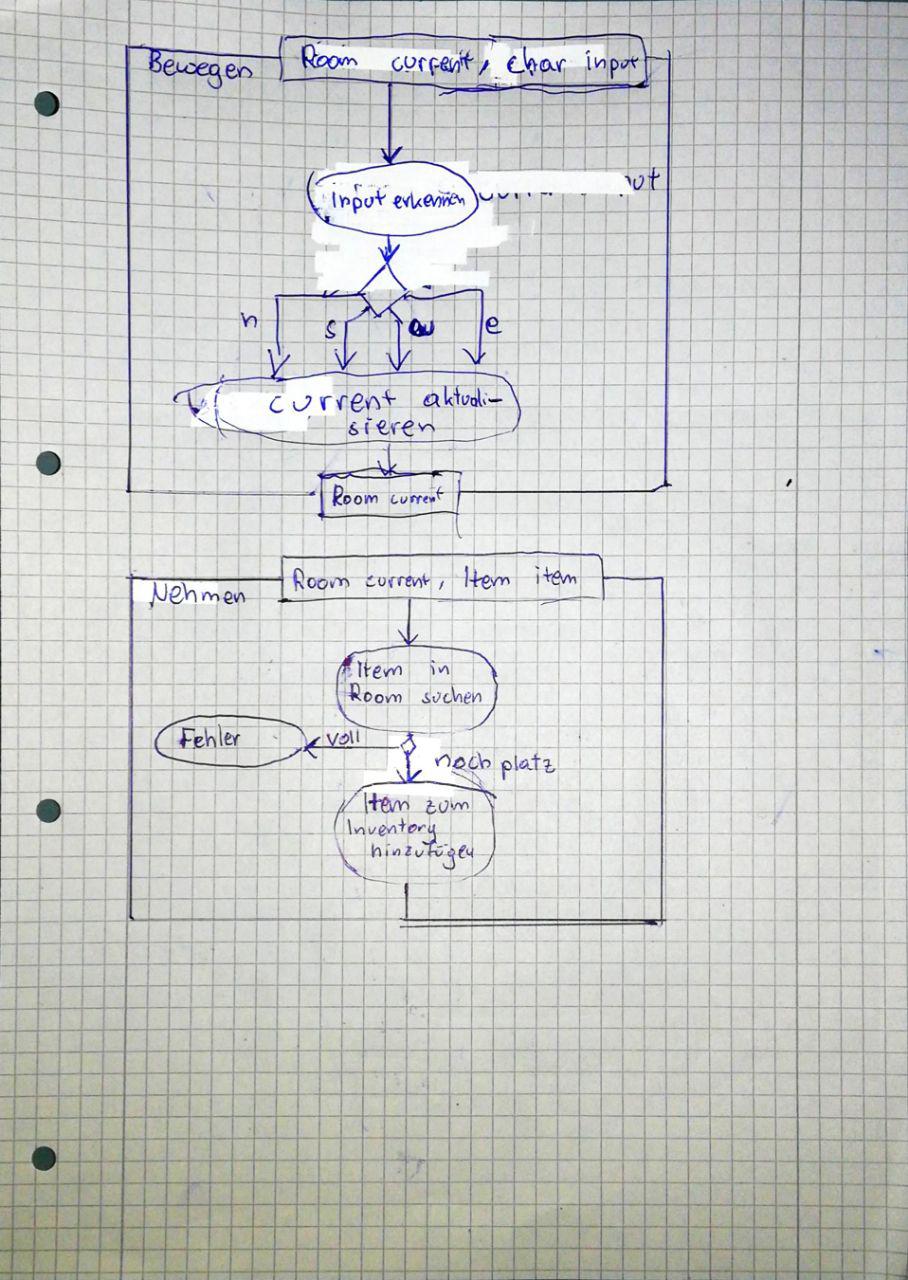 Bewegen
Room current, char input
Input erkennen
n
s
e
current aktuali-
sieren
Room current
Nehmen
Room current, Item item
Item in
Room suchen
Fehler
voll
noch platz
Item zum
Inventory
hinzufügen